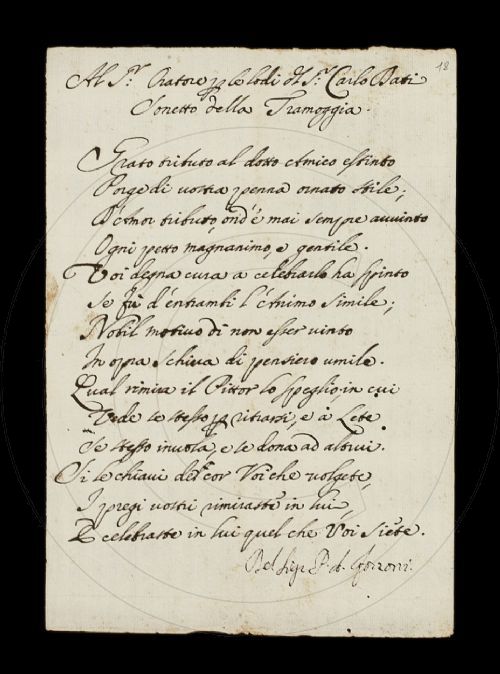 18
Al S.r Oratore p le lodi del S.r Carlo Dati
Sonetto della Tramoggia.
Grato tributo al dotto Amico estinto
Porge di vostra penna ornato stile;
D'Amor tributo, ond'è mai sempre avvinto
Ogni petto magnanimo, e gentile.
Voi degna cura a celebrarlo ha spinto
Se fu d'entrambi l'Animo simile;
Nobil motivo di non esser vinto
In opra schiva di pensiero umile.
Qual rimira il Pittor lo speglio, in cui
Vede se stesso p ritrarsi, e à Lete
Se stesso invola, e se dona ad altrui.
Si le chiavi del cor Voi che volgete,
I pregi vostri rimiraste in lui,
E celebraste in lui quel che Voi siete.
Del Sig.